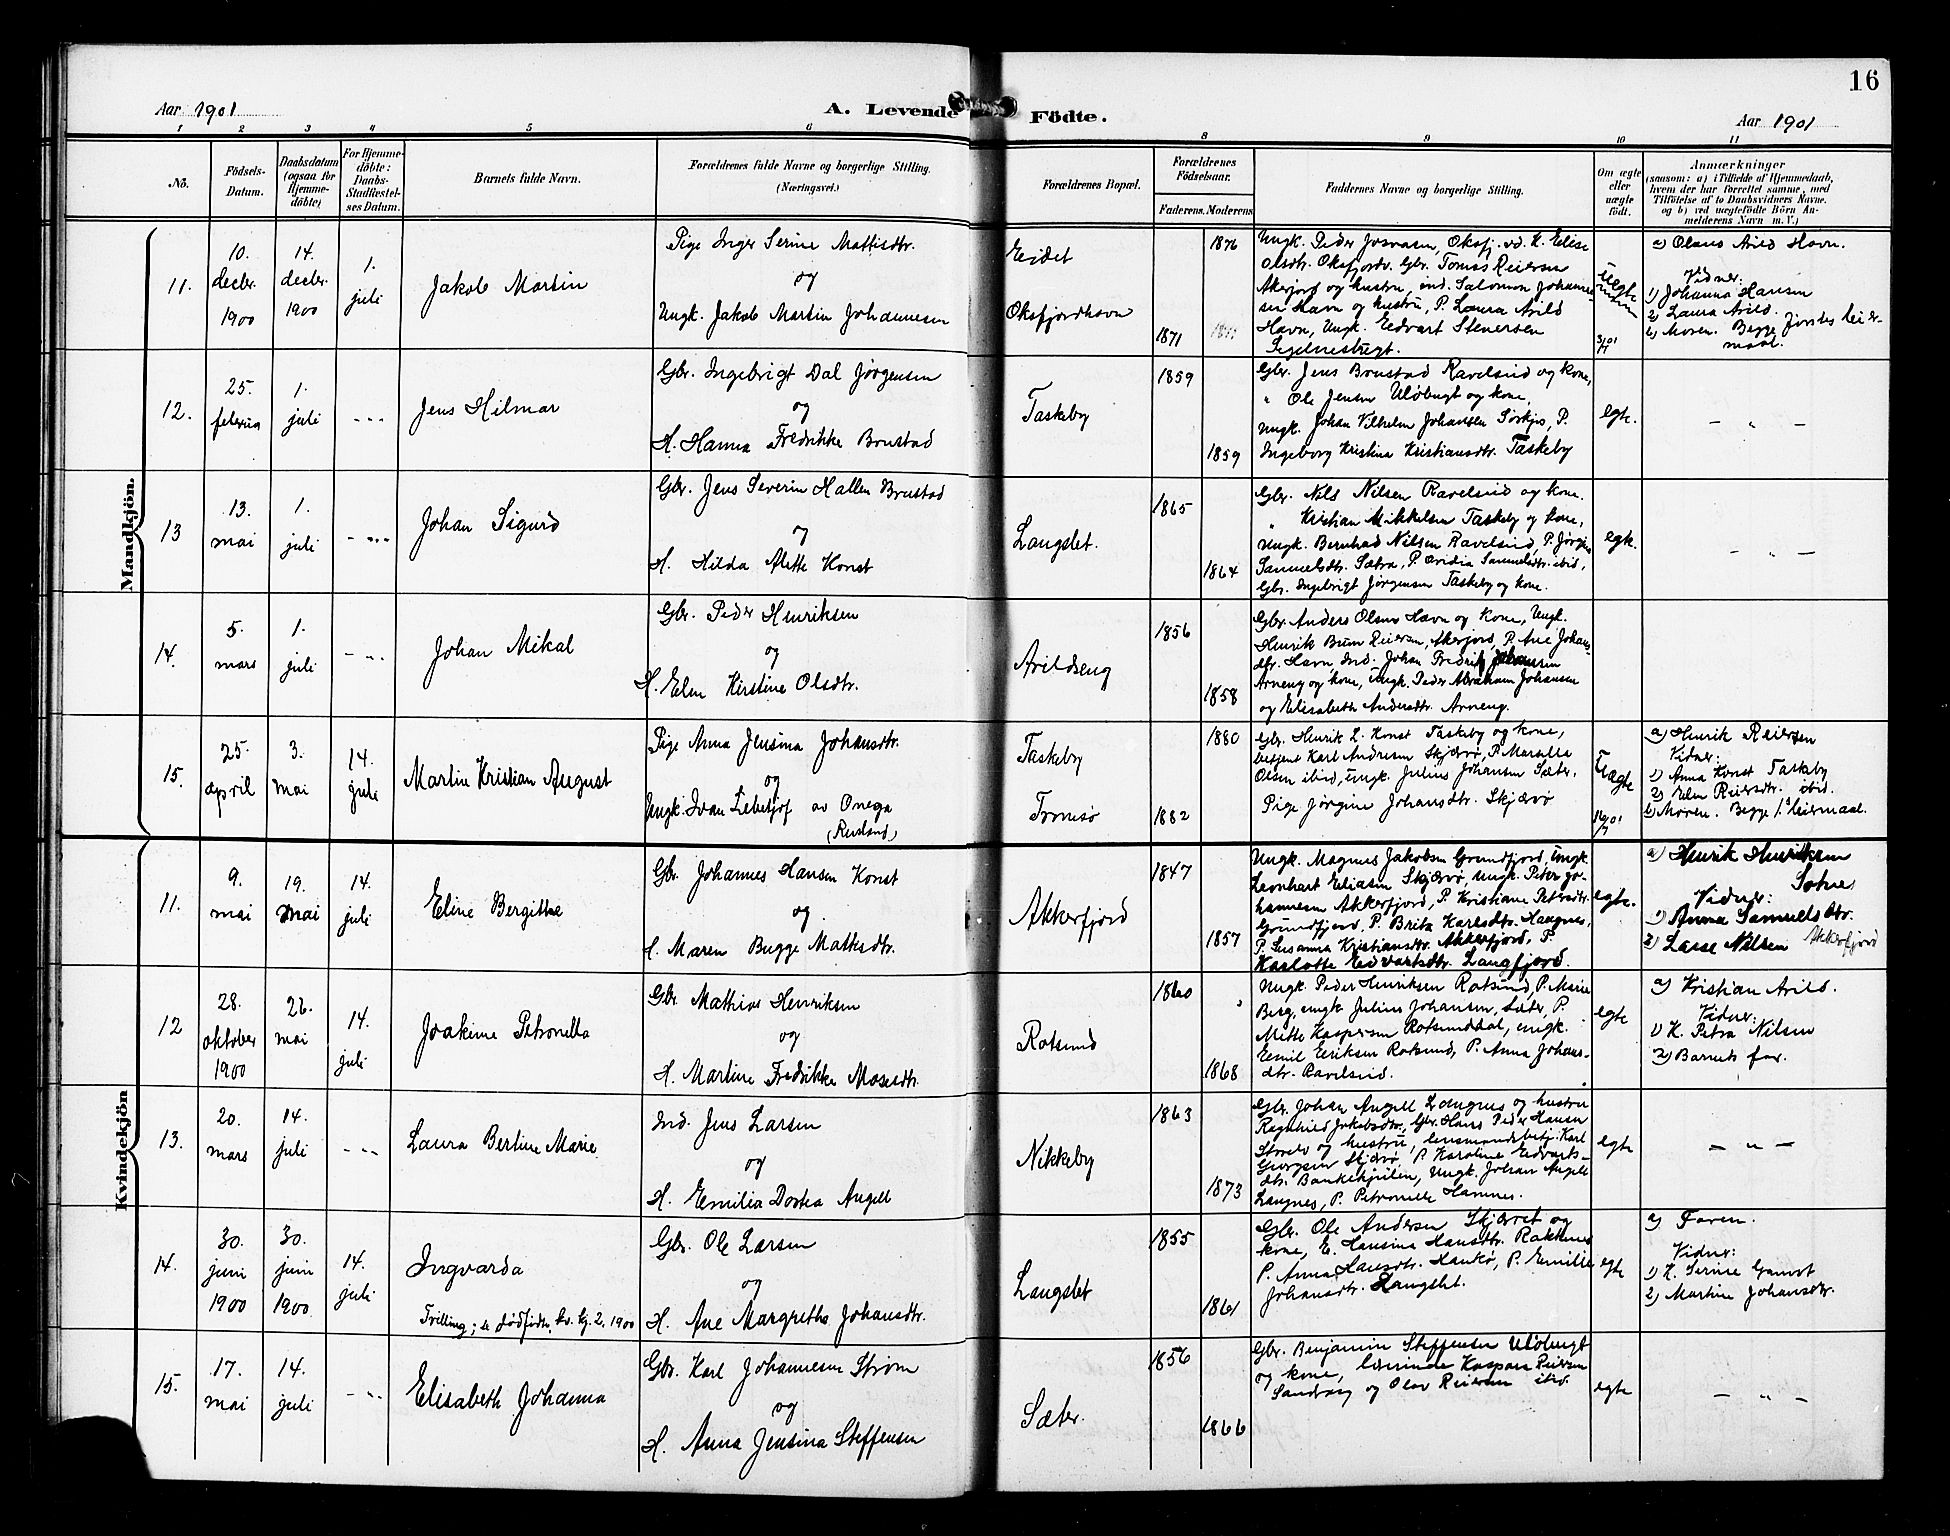 16
Aar 1901
A. Levende Födte.
Aar 1901
1 2 3 4 5 6 8 9 10 11
No.
Födsels-
Datum.
Daabsdatum
(ogsaa for
Hjemme-
döbte)
For Hjemme-
döbte:
Daabs-
Stadfæstel-
ses Datum.
Barnets fulde Navn.
Forældrenes fulde Navne og borgerlige Stilling.
(Næringsvei.)
Forældrenes Bopæl.
Forældrenes
Födselsaar.
Faderens. Moderens
Faddernes Navne og borgerlige Stilling.
Om ægte
eller
uægte
födt.
Anmærkninger
(saasom: a) i Tilfælde af Hjemmedaab,
hvem der har forrettet samme, med
Tilföielse af to Daabsvidners Navne.
og b) ved uægtefödte Börn An-
melderens Navn m. V.)
Mandkjön.
11.
10.
decbr.
1900
14.
decbr.
1900
1.
juli
Jakob Martin
Pige Inger Serine Mattisdtr.
og
Ungk. Jakob Martin Johannesen
Eidet
Oksfjordhavn
1876
1871
Ungk. Peder Josvasen, Oksfj. vd. K. Elise
Olsdtr. Oksfjordv. Gbr. Tomas Reiersen
Akerjord og hustru, ind. Salomon Johanne-
sen Havn og hustru, P. Laura Arild
Havn, Ungk. Edvart Stenersen
Segelnesbugt.
a) Olaus Arild Havn.
Vidner:
1) Johanna Hansen
2) Laura Arild.
b) Moren. Begge förstes leier-
maal.
12.
25.
februa
1.
juli
- - -
Jens Hilmar
Gbr. Ingebrigt Dal Jørgensen
og
H. Hanna Fredrikke Brustad
Taskeby
1859
1859
Gbr. Jens Brustad Ravelsund og kone,
" Ole Jensen Uløbugt og kone,
Ungk. Johan Vilhelm Johansen Sørkjos, P.
Ingeborg Kristina Kristiansdtr. Taskeby
egte.
- " -
13
13.
mai
1.
juli
- " -
Johan Sigurd
Gbr. Jens Severin Hallen Brustad
og
H. Hilda Alette Konst
Langslet.
1865
1864
Gbr. Nils Nilsen Ravelsund og kone.
" Kristian Mikkelsen Taskeby og kone,
Ungk. Bernhad Nilsen Ravelsund, P. Jørgine
Samuelsdtr. Sætra, P. Ovidia Samuelsdtr. ibid,
Gbr. Ingebrigt Jørgensen Taskeby og kone.
egte.
- " -
14.
5.
mars
1.
juli
- " -
Johan Mikal
Gbr. Peder Henriksen
og
H. Elen Kirstine Olsdtr.
Arildseng
1856
1858
Gbr Anders Olsen Havn og Kone, Ungk.
Henrik Brun Reiersen, Akerjord, P. Ane Johans-
dtr. Havn Ind. Johan Fredrik Johansen
Arneng og kone, ungk. Peder Abraham Johansen
og Elisabeth Andersdtr. Arneng.
15.
25.
april
3.
mai
14.
juli
Martin Kristian August
Pige Anna Jensina Johansdtr.
og
Ungk. Ivan av Onega
(Rusland)
Taskeby
Tromsø
1880
1882
Gbr. Henrik L. Konst Taskeby og kone,
betjent Karl Andresen Skjærvø, P. Marselle
Olsen ibid, ungk. Julius Johansen Sæter,
Pige Jørgine Johansdtr. Skjærvø
Uægte
a) Henrik Reiersen
Vidner:
1) Anna Konst Taskeby
2) Elen Reiersdtr. ibid.
b) Moren. Begge 1. leiermaal.
Kvindekjön
11.
9.
mai
19.
mai
14.
juli
Eline Bergitha
Gbr. Johannes Hansen Konst
og
H. Maren Bugge Mathisdtr.
Akkerfjord
1847
1857
Ungk. Magnus Jakobsen Grundfjord, ungk.
Leonhart Eliasen Skjærvø, ungk. Peter Jo-
hannesen Akkerfjord, P. Kristiane Petersdtr.
Grundfjord, P. Brita Karlsdtr. Haugnes,
P. Susanna Kristiansdtr. Akkerfjord, P.
Karlotte Edvartsdtr. Langfjord.
egte.
a) Henrik Henriksen
Vidner:
1) Anna Samuelsdtr.
2) Lasse Nilsen Akkerfjord
12
28.
oktober
1900
26.
mai
14.
juli
Joakime Petronella
Gbr Mathias Henriksen
og
H. Martine Fredrikke Mosesdtr.
Rotsund
1860
1868
Ungk. Peder Henriksen Rotsund, P. Marie
Berg, ungk Julius Johansen, Sæter, P.
Mette Kaspersen Rotsunddal, ungk.
Emil Eriksen Rotsund, P. Anna Johans-
dtr. Ravelsund.
egte
a) Kristian Arild.
Vidner:
1) K. Petra Nilsen
2) Barnets far.
13.
20.
mars
14.
juli
- " -
Laura Bertine Marie
Ind. Jens Larsen
og
H. Emilia Dortea Angell
Nikkeby
1863
1873
Gbr. Johan Angell Langnes og hustru
Ragnhild Jakobsdtr, Gbr. Hans Peder Hansen
og hustru, lensmandsbetj. Karl
Georgsen Skjærvø, P. Karoline Edvarts-
dtr. Bankekjulen, Ungk. Johan Angell
Langnes, P. Petronelle Hamnes.
egte
- " -
14.
30.
juni
1900
30.
juni
1900
14.
juli
Ingvarda
Trilling; to dødfødte, kv. kj. 2. 1900
Gbr. Ole Larsen
og
H. Ane Margrethe Johansdtr.
Langslet
1855
1861
Gbr. Ole Andersen Skjæret og
kone, E. Hansina Hansdtr. Rakkenes
P. Anna Hansdtr. Haukø, P. Emilie
Johansdtr. Langslet.
egte
a) Faren.
Vidner:
1) K. Serine Gamst
2) Martine Johansdtr.
15.
17.
mai
14.
juli
- " -
Elisabeth Johanna
Gbr. Karl Johannesen Strøm
og
H. Anna Jensina Steffensen
Sæter.
1856
1866
Gbr. Benjamin Steffensen Uløbugt
og kone, lærerinde Kaspara Reiersen
Sandvaag og Olav Reiersen ibid.
egte
- " -